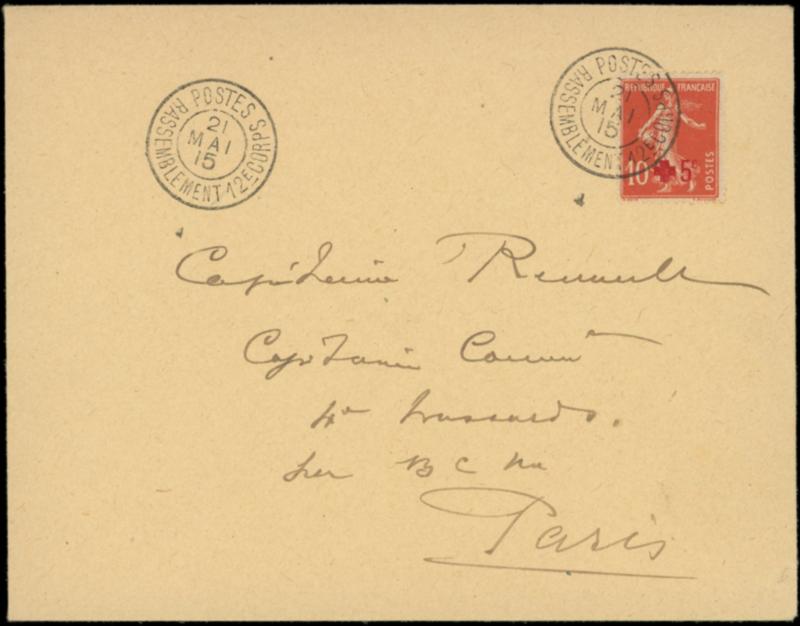 POSTES
RASSEMBLEMENT 12E CORPS
21
MAI
15
POSTES
RASSEMBLEMENT 12E CORPS
21
MAI
15
REPUBLIQUE FRANÇAISE
POSTES
10 5c
Capitaine Renault
Capitaine Comm
4e hussards.
par B C M
Paris